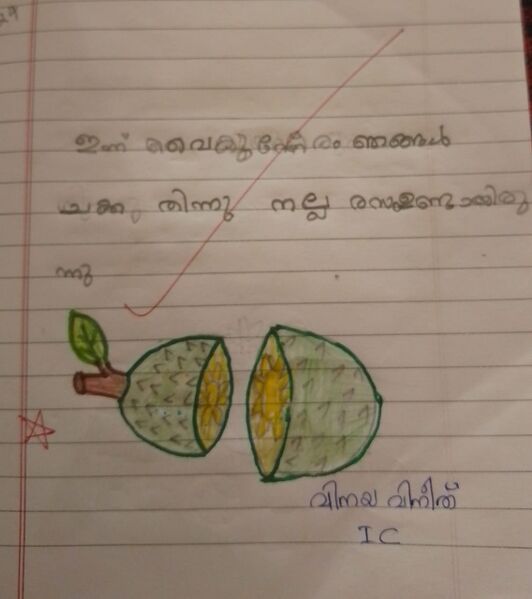 29
ഇന്ന് വൈകുന്നേരം ഞങ്ങൾ
ചക്ക തിന്നു നല്ല രസമുണ്ടായിരു
ന്നു
വിനയ വിനീത്
I C